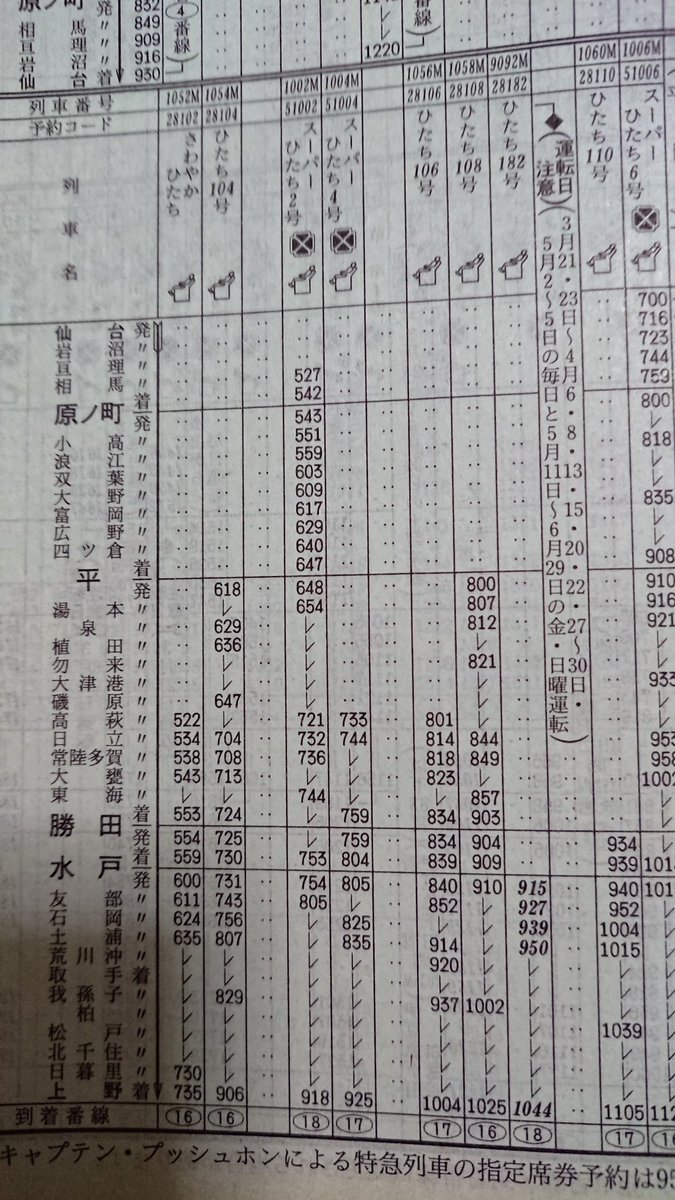 原ノ町 発 832 ④番線
相馬 〃 849
亘理 〃 909
岩沼 〃 916
仙台 着 930 レ 1220
列車番号 1052M 1054M 1002M 1004M 1056M 1058M 9092M 1060M 1006M
予約コード 28102 28104 51002 51004 28106 28108 28182 28110 51006
列車名 さわやかひたち ひたち104号 スーパーひたち2号 スーパーひたち4号 ひたち106号 ひたち108号 ひたち182号 ひたち110号 スーパーひたち6号
◆(運転日注意)(3月21・23日〜4月6・8・13・15・20・22・27〜30日・5月2〜5日の毎日と5月11日〜6月29日の金・日曜運転)
仙台 発 ‥ ‥ ‥ ‥ ‥ ‥ ‥ 700
岩沼 〃 ‥ ‥ ‥ ‥ ‥ ‥ ‥ 716
亘理 〃 ‥ ‥ ‥ ‥ ‥ ‥ ‥ 723
相馬 〃 ‥ ‥ 527 ‥ ‥ ‥ ‥ 744
原ノ町 着 ‥ ‥ 542 ‥ ‥ ‥ ‥ 759
発 ‥ ‥ 543 ‥ ‥ ‥ ‥ 800
小高 〃 ‥ ‥ 551 ‥ ‥ ‥ ‥ レ
浪江 〃 ‥ ‥ 559 ‥ ‥ ‥ ‥ 818
双葉 〃 ‥ ‥ 603 ‥ ‥ ‥ ‥ レ
大野 〃 ‥ ‥ 609 ‥ ‥ ‥ ‥ レ
富岡 〃 ‥ ‥ 617 ‥ ‥ ‥ ‥ 835
広野 〃 ‥ ‥ 629 ‥ ‥ ‥ ‥ レ
四ツ倉 〃 ‥ ‥ 640 ‥ ‥ ‥ ‥ レ
平 着 ‥ ‥ 647 ‥ ‥ ‥ ‥ 908
発 ‥ 618 648 ‥ ‥ 800 ‥ 910
湯本 〃 ‥ レ 654 ‥ ‥ 807 ‥ 916
泉 〃 ‥ 629 レ ‥ ‥ 812 ‥ 921
植田 〃 ‥ 636 レ ‥ ‥ レ ‥
勿来 〃 ‥ レ レ ‥ ‥ 821 ‥
大津港 〃 ‥ レ レ ‥ ‥ レ ‥ 933
磯原 〃 ‥ 647 レ ‥ ‥ レ ‥
高萩 〃 522 レ 721 733 801 レ ‥
日立 〃 534 704 732 744 814 844 ‥ 953
常陸多賀 〃 538 708 736 レ 818 849 ‥ 958
大甕 〃 543 713 レ レ 823 レ ‥ 1002
東海 〃 レ レ 744 レ レ 857 ‥
勝田 着 553 724 レ 759 834 903 ‥
発 554 725 レ 759 834 904 934
水戸 着 559 730 753 804 839 909 939
発 600 731 754 805 840 910 915 940
友部 〃 611 743 805 レ 852 レ 927 952 レ
石岡 〃 624 756 レ 825 レ レ 939 1004 レ
土浦 〃 635 807 レ 835 914 レ 950 1015 レ
荒川沖 〃 レ レ レ レ 920 レ レ レ レ
取手 着 レ レ レ レ レ レ レ レ レ
我孫子 〃 レ 829 レ レ 937 1002 レ レ レ
柏 〃 レ レ レ レ レ レ レ レ レ
松戸 〃 レ レ レ レ レ レ レ 1039 レ
北千住 〃 レ レ レ レ レ レ レ レ レ
日暮里 〃 730 レ レ レ レ レ レ レ レ
上野 着 735 906 918 925 1004 1025 1044 1105
到着番線 ⑯ ⑯ ⑱ ⑰ ⑰ ⑯ ⑱ ⑰
キャプテン・プッシュホンによる特急列車の指定席券予約は